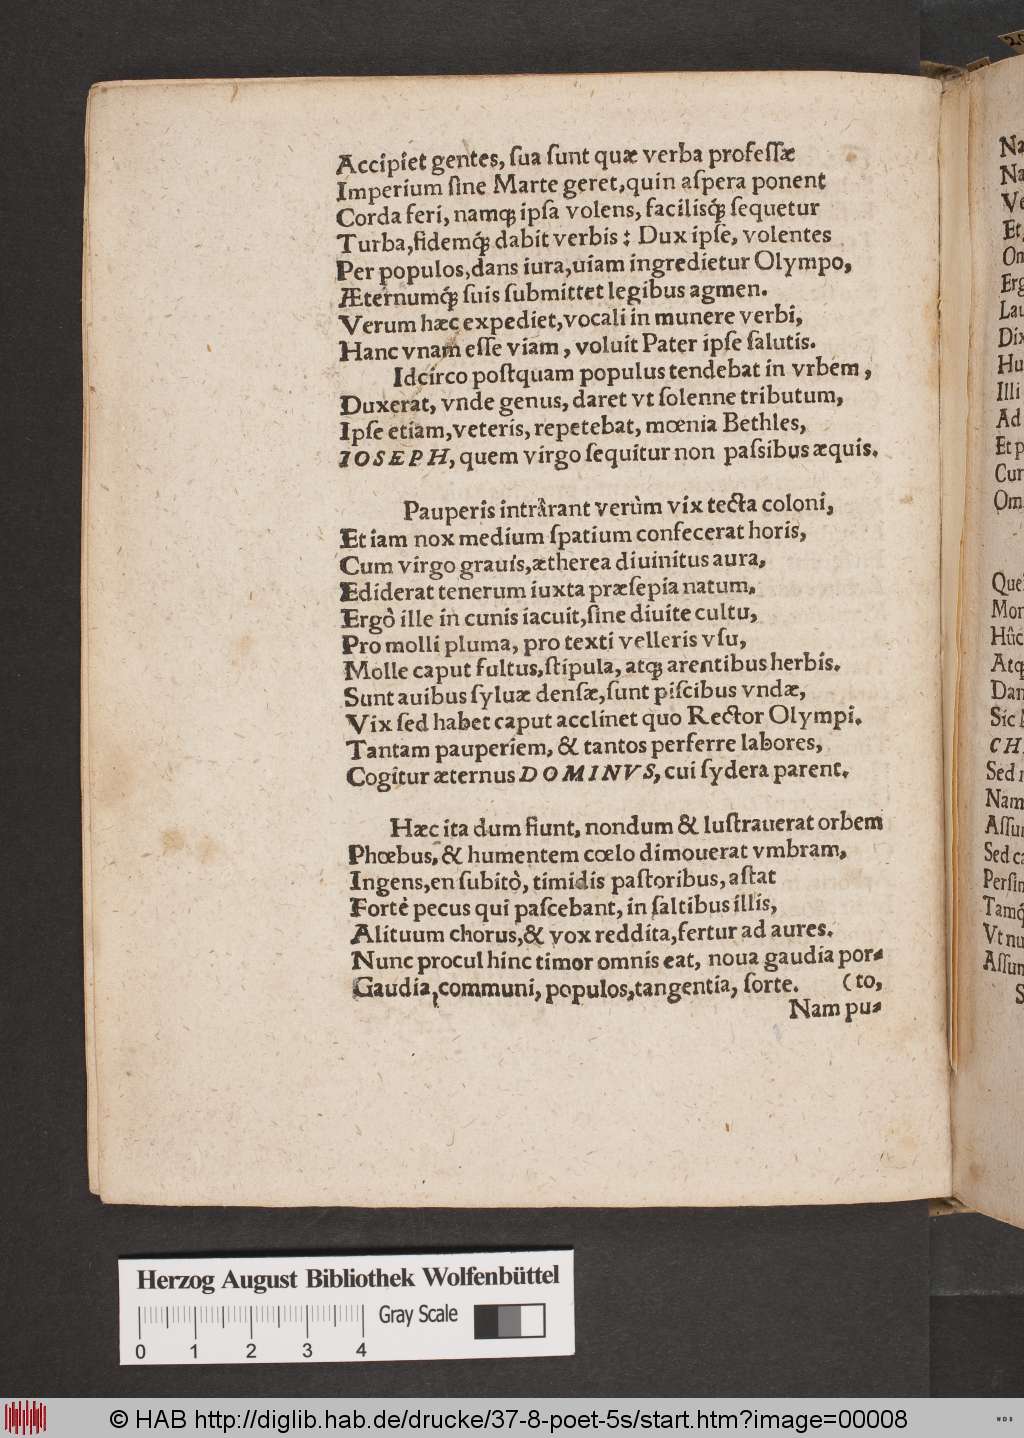 Accipiet gentes, ſua ſunt quæ verba profeſſæ
Imperium ſine Marte geret, quin aſpera ponent
Corda feri, namq́; ipſa volens, facilisq́; ſequetur
Turba, fidemq́; dabit verbis: Dux ipſe, volentes
Per populos, dans iura, uiam ingredietur Olympo,
Æternumq́; ſuis ſubmittet legibus agmen.
Verum hæc expediet, vocali in munere verbi,
Hanc vnam eſſe viam, voluit Pater ipſe ſalutis.
Idcirco poſtquam populus tendebat in vrbem,
Duxerat, vnde genus, daret vt ſolenne tributum,
Ipſe etiam, veteris, repetebat, mœnia Bethles,
IOSEPH, quem virgo ſequitur non paſsibus æquis.
Pauperis intrârant verùm vix tecta coloni,
Et iam nox medium ſpatium confecerat horis,
Cum virgo grauis, ætherea diuinitus aura,
Ediderat tenerum iuxta præſepia natum,
Ergò ille in cunis iacuit, ſine diuite cultu,
Pro molli pluma, pro texti velleris vſu,
Molle caput fultus, ſtipula, atq; arentibus herbis.
Sunt auibus ſyluæ denſæ, ſunt piſcibus vndæ,
Vix ſed habet caput acclinet quo Rector Olympi.
Tantam pauperiem, & tantos perferre labores,
Cogitur æternus DOMINVS, cui ſydera parent.
Hæc ita dum fiunt, nondum & luſtrauerat orbem
Phœbus, & humentem cœlo dimouerat vmbram,
Ingens, en ſubitò, timidis paſtoribus, aſtat
Fortè pecus qui paſcebant, in ſaltibus illis,
Alituum chorus, & vox reddita, fertur ad aures.
Nunc procul hinc timor omnis eat, noua gaudia por-
Gaudia, communi, populos, tangentia, ſorte. (to,
Nam pu-
Na
Na
Ve
Et
Om
Erg
Lau
Dix
Hu
Illi
Ad
Et p
Cur
Om
Que
Mor
Hûc
Atq
Dan
Sic
CH
Sed
Nam
Aſſu
Sed ca
Perſin
Tamq́
Vt nu
Aſſun
S
Herzog August Bibliothek Wolfenbüttel
Gray Scale
0 1 2 3 4
© HAB http://diglib.hab.de/drucke/37-8-poet-5s/start.htm?image=00008